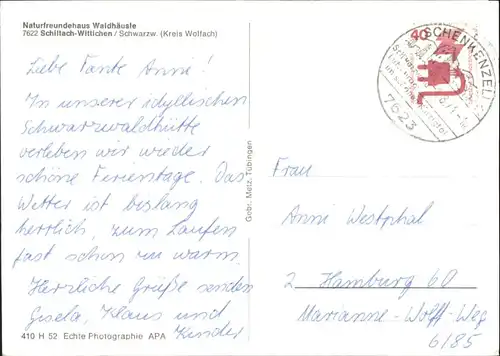 Naturfreundehaus Waldhäusle
7622 Schiltach-Wittichen / Schwarzw. (Kreis Wolfach)
Liebe Tante Anni!
In unserer idyllischen
Schwarzwaldhütte
verleben wir wieder
schöne Ferientage. Das
Wetter ist bislang
herrlich, zum Laufen
fast schon zu warm.
Herzliche Grüße senden
Gisela, Klaus und
Kinder
410 H 52 Echte Photographie APA
Gebr. Metz, Tübingen
SCHENKENZELL
7623
40
Frau
Anni Westphal
2 Hamburg 60
Marianne-Wolff-Weg
6/85